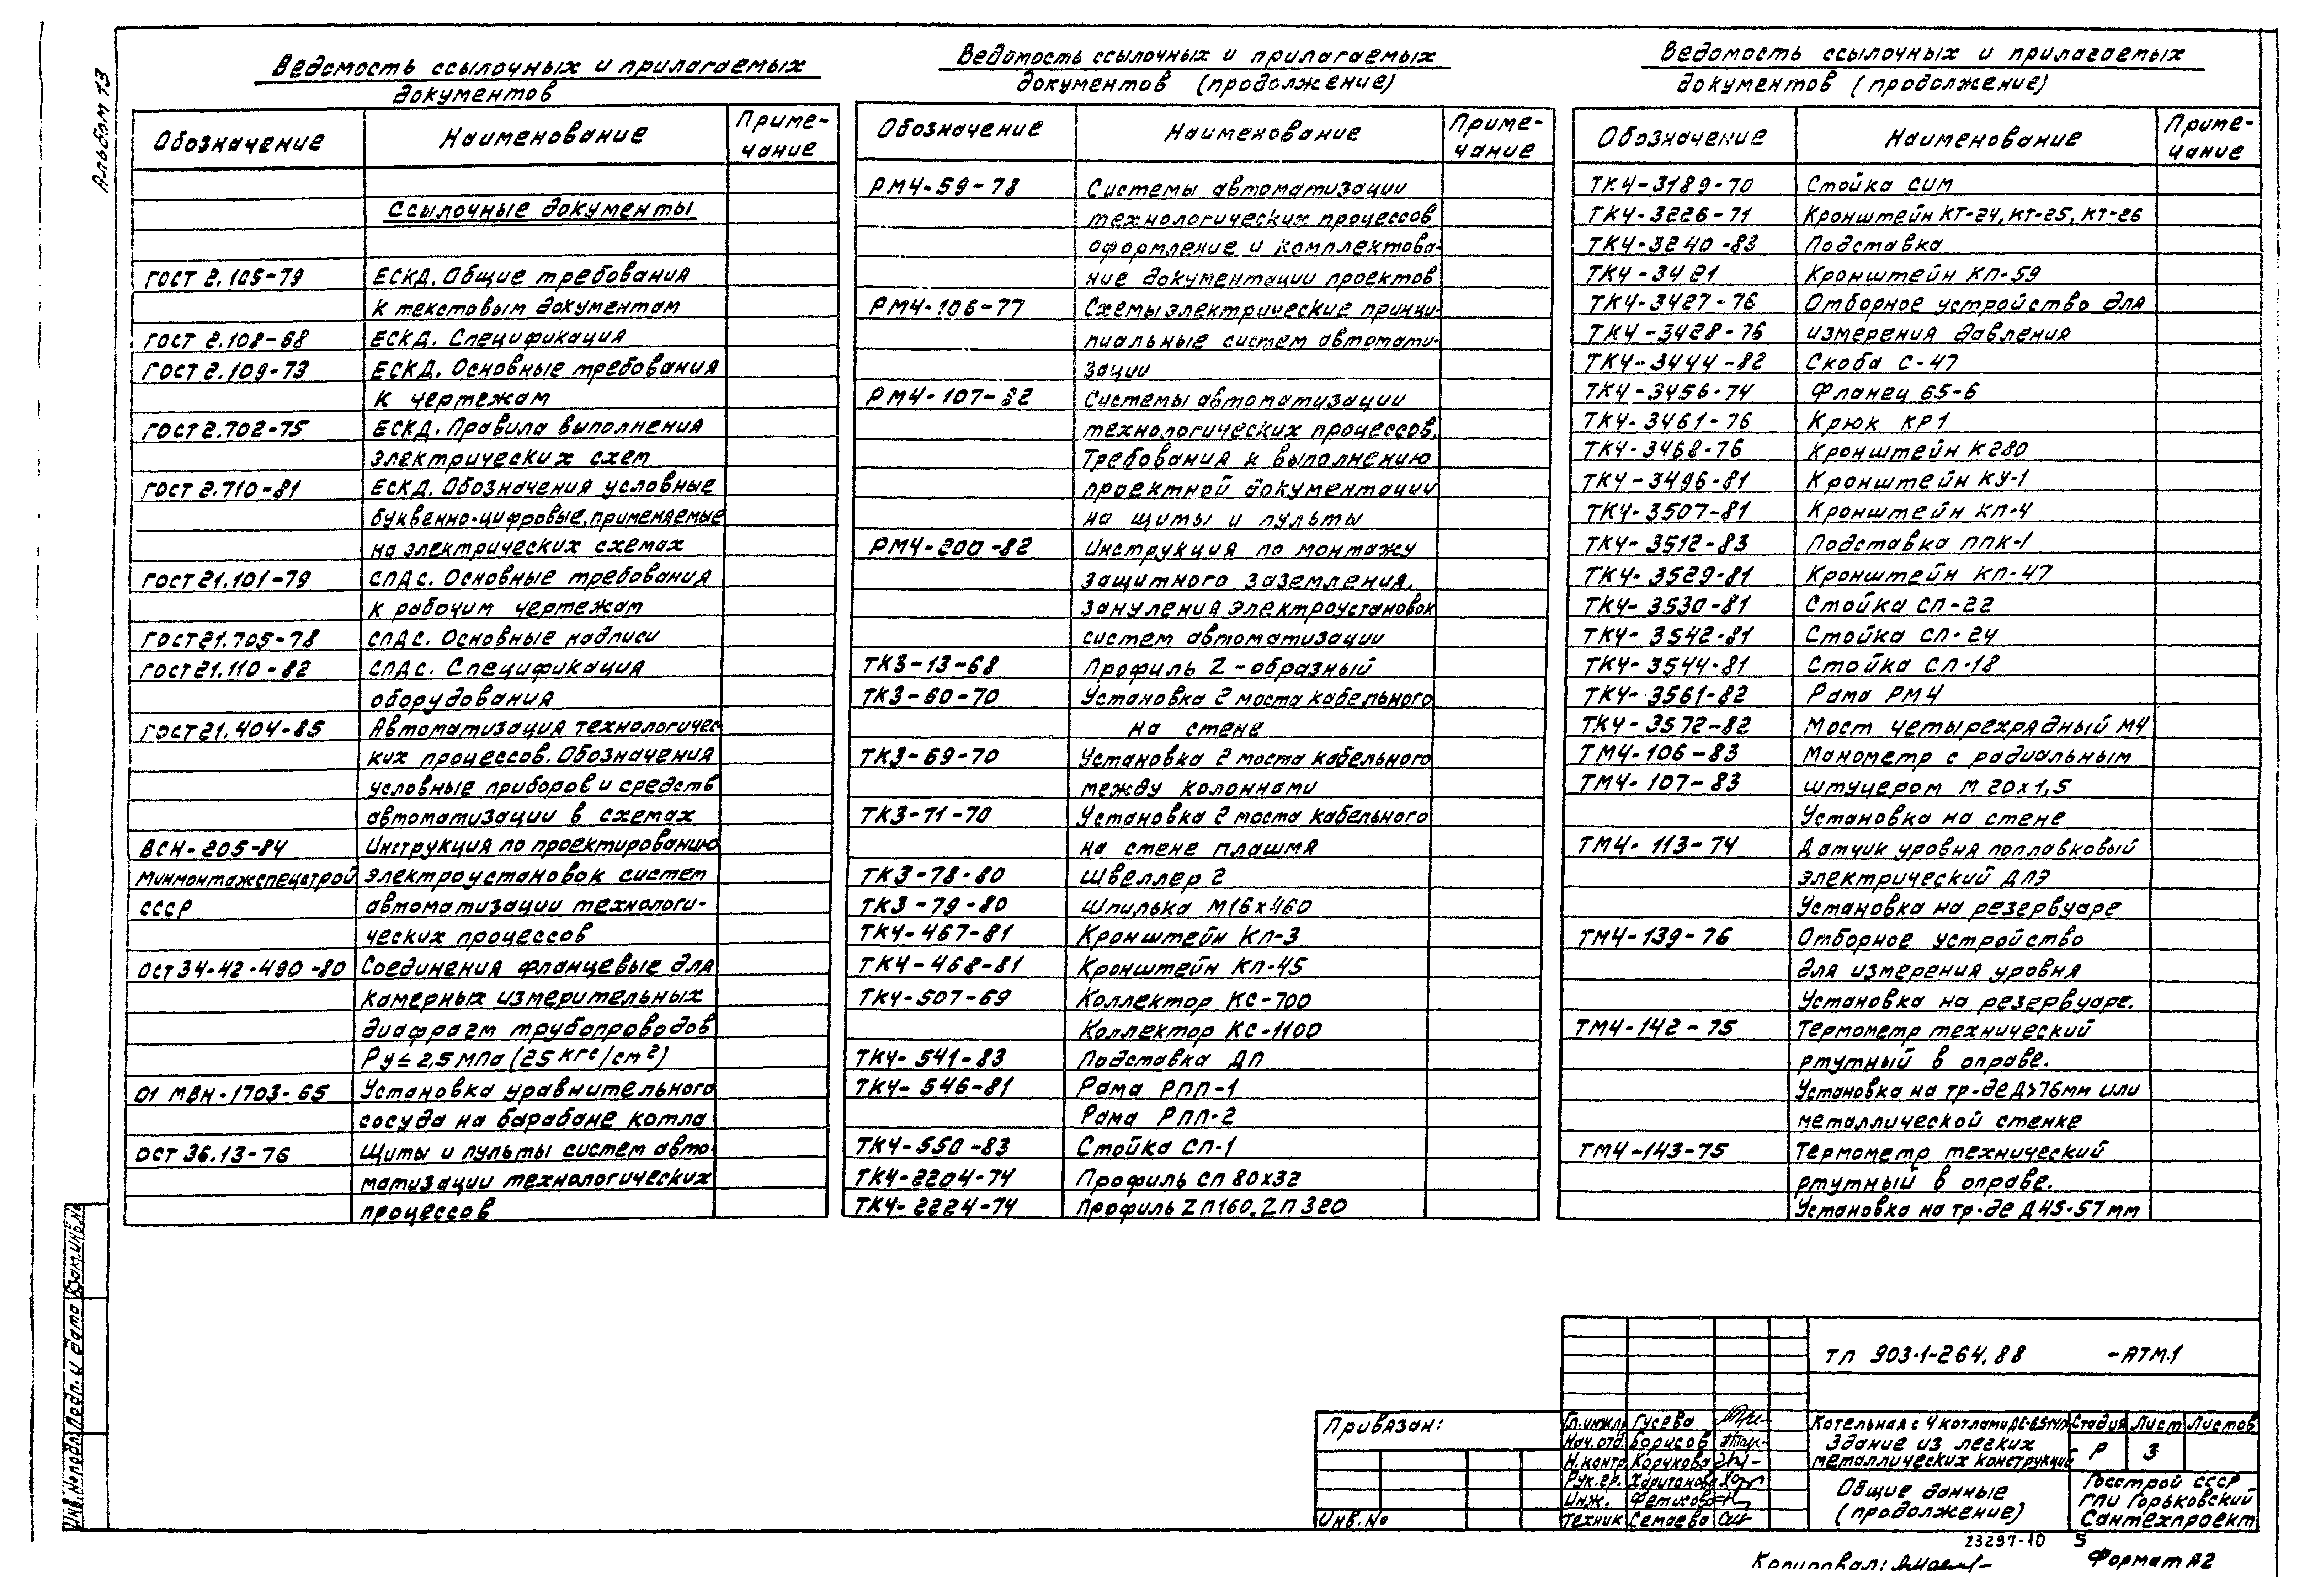 Альбом 13
Ведомость ссылочных и прилагаемых
документов
Обозначение Наименование Приме-
чание
Ссылочные документы
ГОСТ 2.105-79 ЕСКД. Общие требования
к текстовым документам
ГОСТ 2.108-68 ЕСКД. Спецификация
ГОСТ 2.109-73 ЕСКД. Основные требования
к чертежам
ГОСТ 2.702-75 ЕСКД. Правила выполнения
электрических схем
ГОСТ 2.710-81 ЕСКД. Обозначения условные
буквенно-цифровые, применяемые
на электрических схемах
ГОСТ 21.101-79 СПДС. Основные требования
к рабочим чертежам
ГОСТ 21.705-78 СПДС. Основные надписи
ГОСТ 21.110-82 СПДС. Спецификация
оборудования
ГОСТ 21.404-85 Автоматизация технологичес
ких процессов. Обозначения
условные приборов и средств
автоматизации в схемах
ВСН-205-84 Инструкция по проектированию
Минмонтажспецстрой электроустановок систем
СССР автоматизации технологи-
ческих процессов
ОСТ 34-42-490-80 Соединения фланцевые для
камерных измерительных
диафрагм трубопроводов
Ру ≤ 2,5 МПа (25 кгс/см²)
01 МВН-1703-65 Установка уравнительного
сосуда на барабане котла
ОСТ 36.13-76 Щиты и пульты систем авто-
матизации технологических
процессов
Ведомость ссылочных и прилагаемых
документов (продолжение)
Обозначение Наименование Приме-
чание
РМ4-59-78 Системы автоматизации
технологических процессов
оформление и комплектова-
ние документации проектов
РМ4-106-77 Схемы электрические принци-
пиальные систем автомати-
зации
РМ4-107-82 Системы автоматизации
технологических процессов.
Требования к выполнению
проектной документации
на щиты и пульты
РМ4-200-82 Инструкция по монтажу
защитного заземления,
зануления электроустановок
систем автоматизации
ТК3-13-68 Профиль Z-образный
ТК3-60-70 Установка 2 моста кабельного
на стене
ТК3-69-70 Установка 2 моста кабельного
между колоннами
ТК3-71-70 Установка 2 моста кабельного
на стене плашмя
ТК3-78-80 Швеллер 2
ТК3-79-80 Шпилька М16х460
ТК4-467-81 Кронштейн КП-3
ТК4-468-81 Кронштейн КП-45
ТК4-507-69 Коллектор КС-700
Коллектор КС-1100
ТК4-541-83 Подставка ДП
ТК4-546-81 Рама РПП-1
Рама РПП-2
ТК4-550-83 Стойка СП-1
ТК4-2204-74 Профиль СП 80х32
ТК4-2224-74 Профиль ZП160, ZП320
Ведомость ссылочных и прилагаемых
документов (продолжение)
Обозначение Наименование Приме-
чание
ТК4-3189-70 Стойка СИМ
ТК4-3226-71 Кронштейн КТ-24, КТ-25, КТ-26
ТК4-3240-83 Подставка
ТК4-3421 Кронштейн КП-59
ТК4-3427-76 Отборное устройство для
ТК4-3428-76 измерения давления
ТК4-3444-82 Скоба С-47
ТК4-3456-74 Фланец 65-6
ТК4-3461-76 Крюк КР1
ТК4-3468-76 Кронштейн К280
ТК4-3496-81 Кронштейн КУ-1
ТК4-3507-81 Кронштейн КП-4
ТК4-3512-83 Подставка ППК-1
ТК4-3529-81 Кронштейн КП-47
ТК4-3530-81 Стойка СП-22
ТК4-3542-81 Стойка СП-24
ТК4-3544-81 Стойка СП-18
ТК4-3561-82 Рама РМ4
ТК4-3572-82 Мост четырехрядный М4
ТМ4-106-83 Манометр с радиальным
ТМ4-107-83 штуцером М 20х1,5
Установка на стене
ТМ4-113-74 Датчик уровня поплавковый
электрический ДПЭ
Установка на резервуаре
ТМ4-139-76 Отборное устройство
для измерения уровня
Установка на резервуаре.
ТМ4-142-75 Термометр технический
ртутный в оправе.
Установка на тр-де Д>76мм или
металлической стенке
ТМ4-143-75 Термометр технический
ртутный в оправе.
Установка на тр-де Д 45-57мм
Взам.инв.№
Подп. и дата
Инв.№подл
ТП 903-1-264.88 -АТМ.1
Привязан:
Инв.№
Гл.инж.пр Гусева
Нач.отд. Борисов
Н.контр Корчкова
Рук.гр. Харитонова
Инж. Фетисова
Техник Семаева
Котельная с 4 котлами ДЕ-6,5-14ГМ
Здание из легких
металлических конструкций
Стадия Лист Листов
Р 3
Общие данные
(продолжение)
Госстрой СССР
ГПИ Горьковский
Сантехпроект
23297-10 5
Копировал:
Формат А2